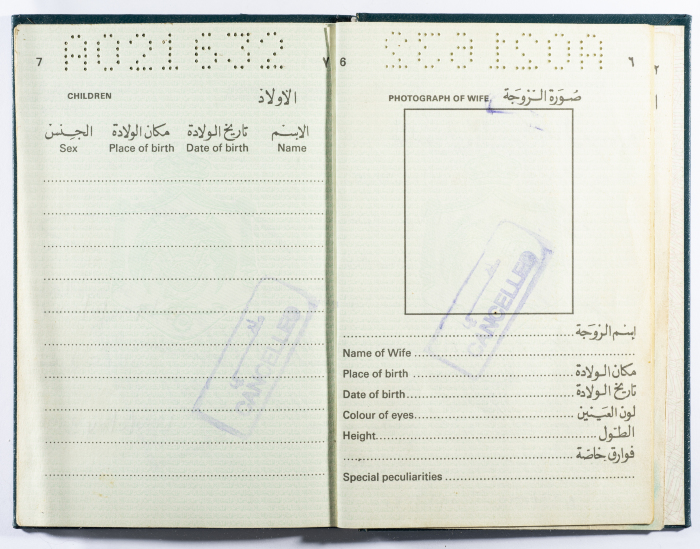 A021632
7 ٧
CHILDREN الاولاد
الجنس مكان الولادة تاريخ الولادة الاسم
Sex Place of birth Date of birth Name
CANCELLED
A021632
6 ٦
PHOTOGRAPH OF WIFE صورة الزوجة
CANCELLED
إسم الزوجة
Name of Wife
Place of birth مكان الولادة
Date of birth تاريخ الولادة
Colour of eyes لون العينين
Height الطول
فوارق خاصة
Special peculiarities
٢